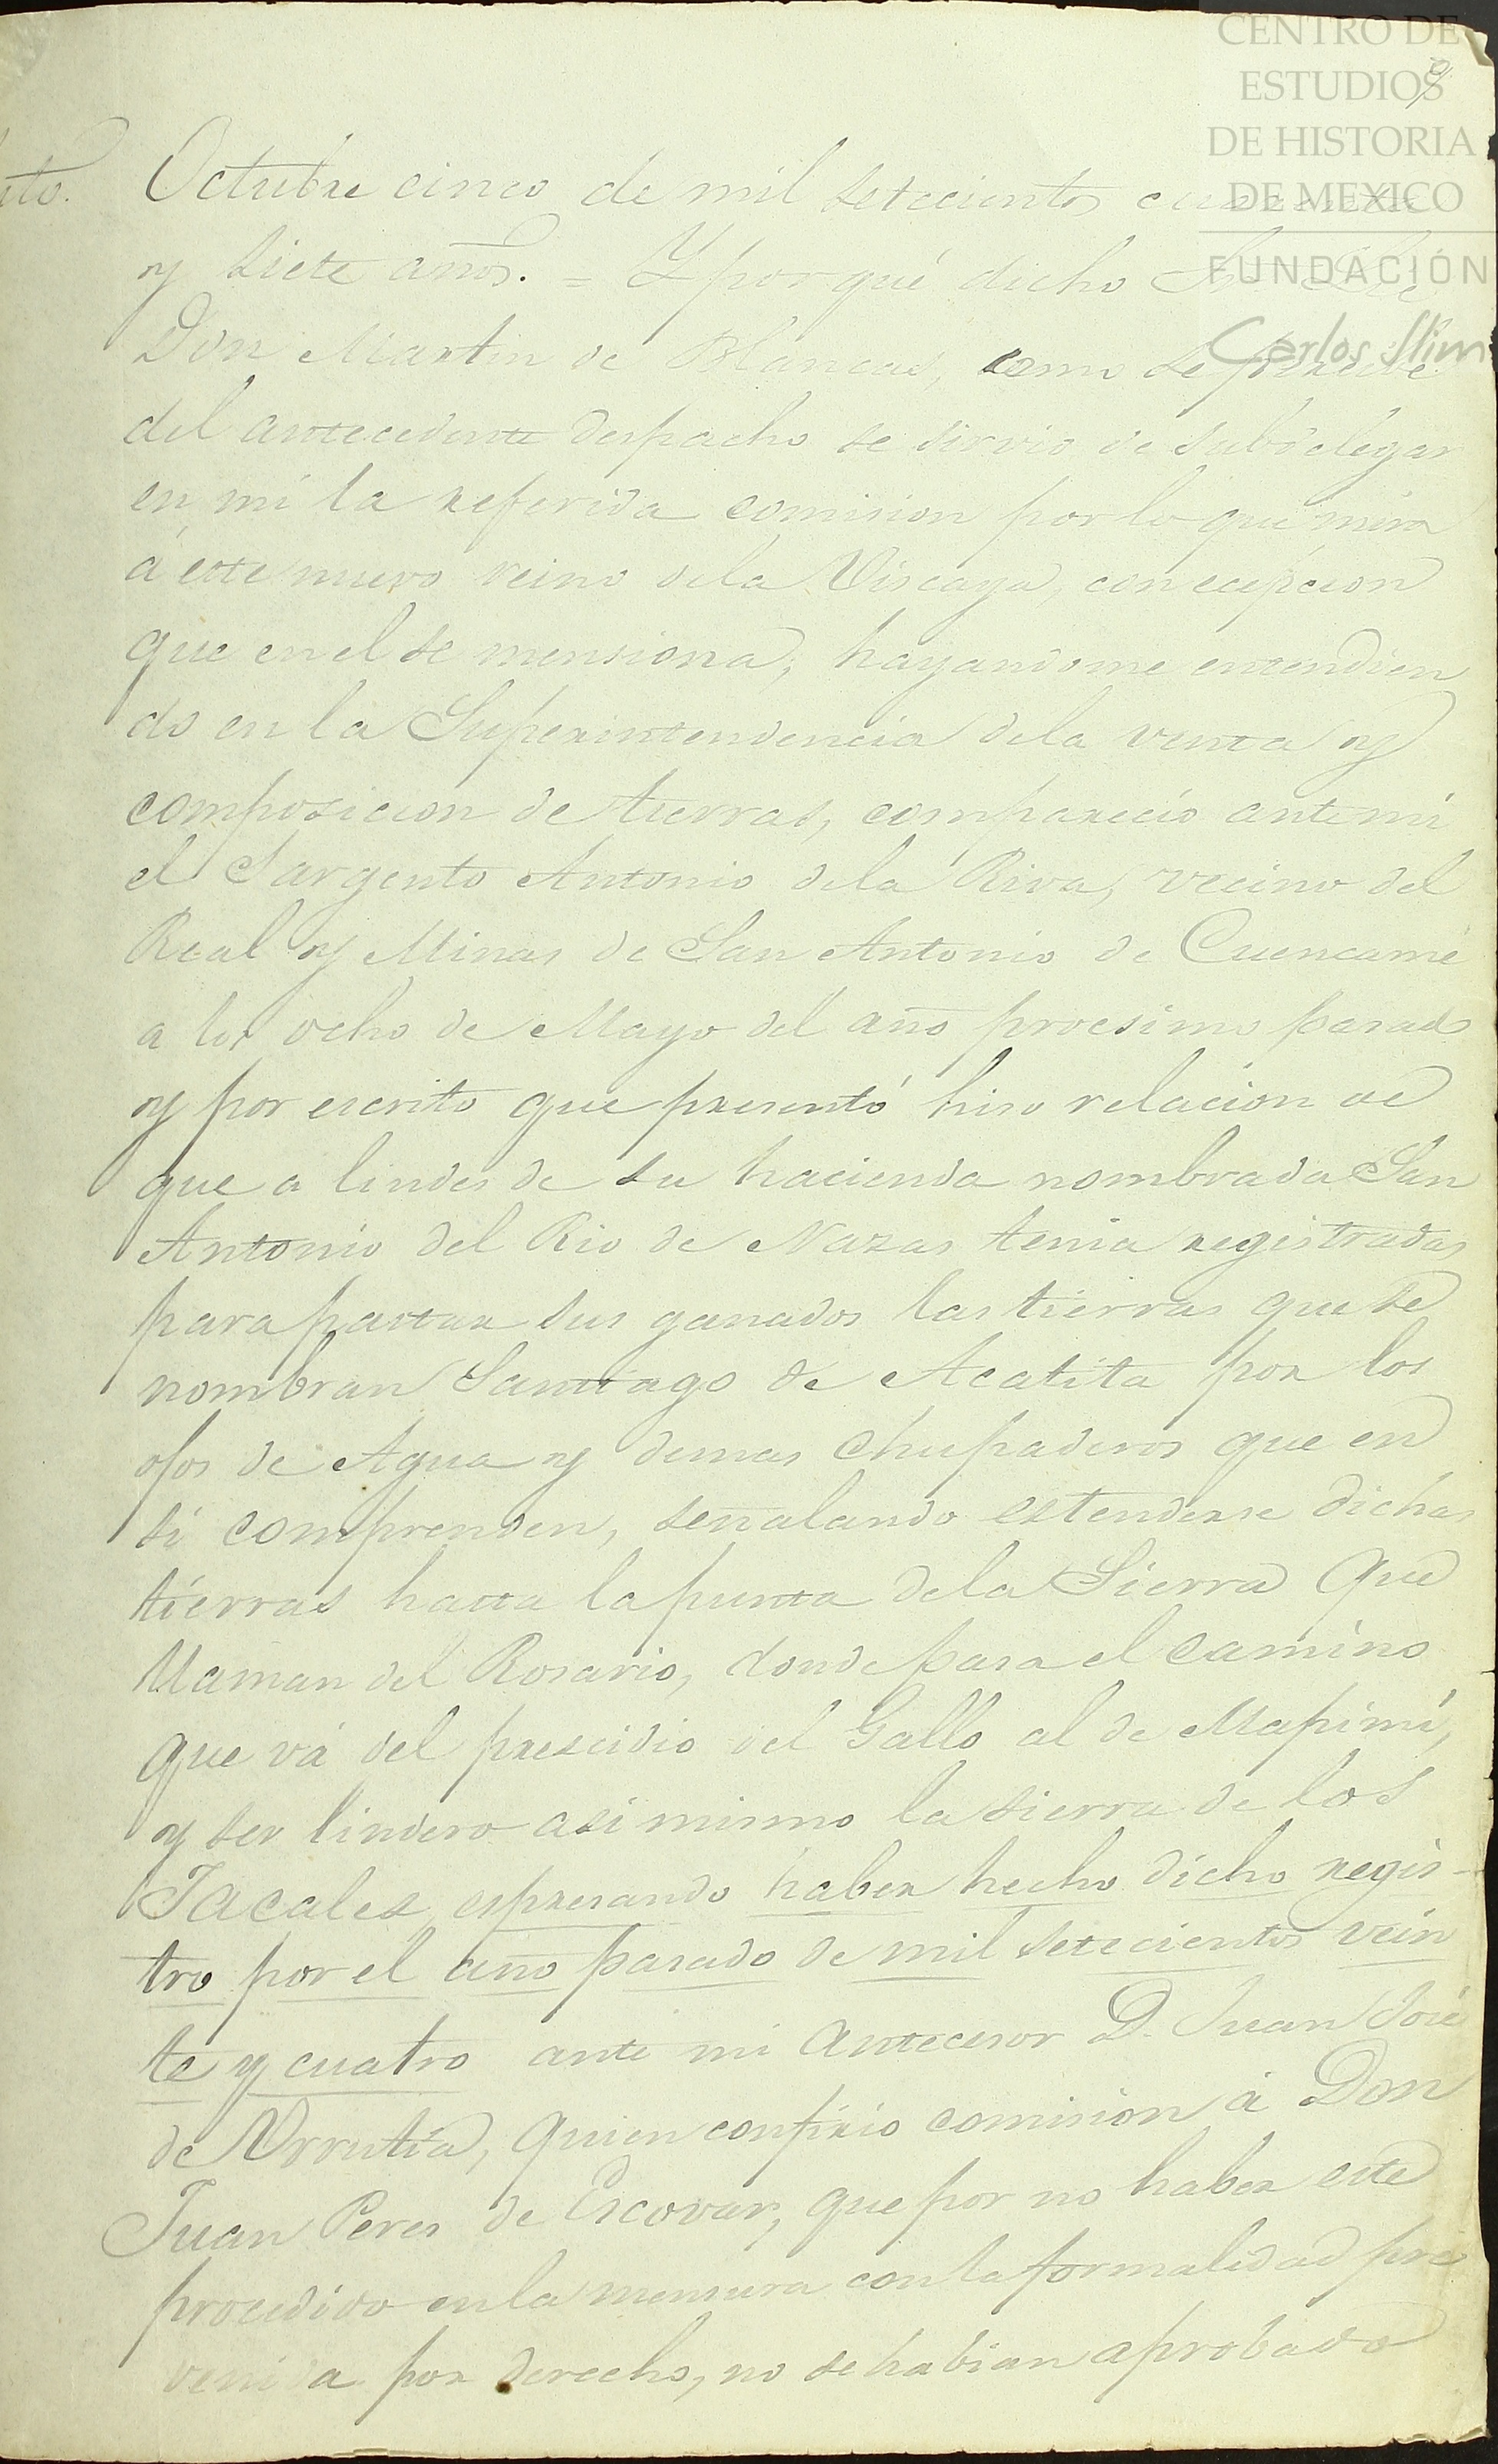 CENTRO DE
ESTUDIOS
DE HISTORIA
DE MEXICO
FUNDACIÓN
Carlos Slim
9
ito. Octubre cinco de mil setecientos cuarenta
y siete años. = Y porqué dicho
Don Martin de Blancas, como se persive
del antecedente despacho se sirvio de subdelegar
en mi la referida comision por lo que mira
á este nuevo reino dela Viscaya, con ecepcion
que en el se mensiona, hayandome entendien
do en la Superintendencia dela venta y
composicion de tierras, comparecio ante mi
el Sargento Antonio dela Riva, vecino del
Real y Minas de San Antonio de Cuencamé
a los ocho de Mayo del año procsimo pasado
y por escrito que presentó hiso relacion de
que a lindes de su hacienda nombrada San
Antonio del Rio de Nazas tenia registradas
para pastar sus ganados las tierras que se
nombran Santiago de Acatita por los
ojos de Agua y demas chupaderos que en
si comprenden, señalando estenderse dichas
tierras hasta la punta dela Sierra que
llaman del Rosario, donde pasa el camino
que vá del prescidio del Gallo al de Mapimí,
y ser lindero asi mismo la sierra de los
Jacales, espresando haber hecho dicho regis-
tro por el año pasado de mil setecientos vein
te y cuatro ante mi antecesor D. Juan José
de Urrutia, quien confirio comision á Don
Juan Peres de Escovar, que por no haber este
procedido en la mensura con la formalidad pre
venida por derecho, no se habian aprobado